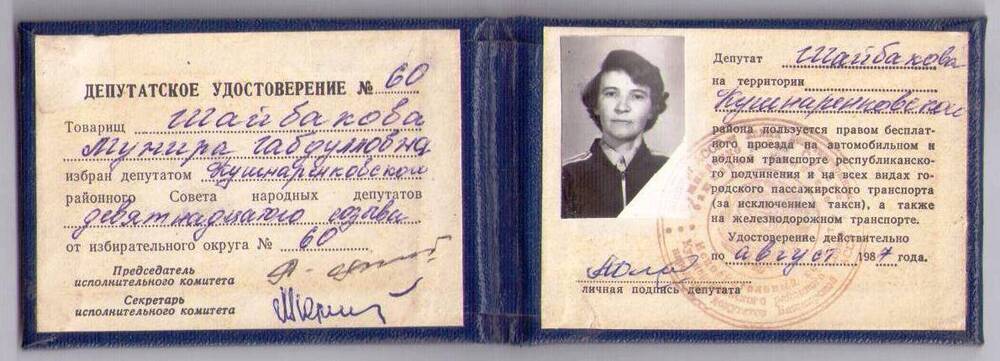 ДЕПУТАТСКОЕ УДОСТОВЕРЕНИЕ № 60
Товарищ Шайбакова
Мунира Габдулловна
избран депутатом Кушнаренковском
районного Совета народных депутатов
девятнадцатого созыва
от избирательного округа № 60
Председатель
исполнительного комитета
Секретарь
исполнительного комитета
Депутат Шайбакова
на территории
Кушнаренковском
района пользуется правом бесплат-
ного проезда на автомобильном и
водном транспорте республиканско-
го подчинения и на всех видах го-
родского пассажирского транспорта
(за исключением такси), а также
на железнодорожном транспорте.
Удостоверение действительно
по август 1987 года.
личная подпись депутата